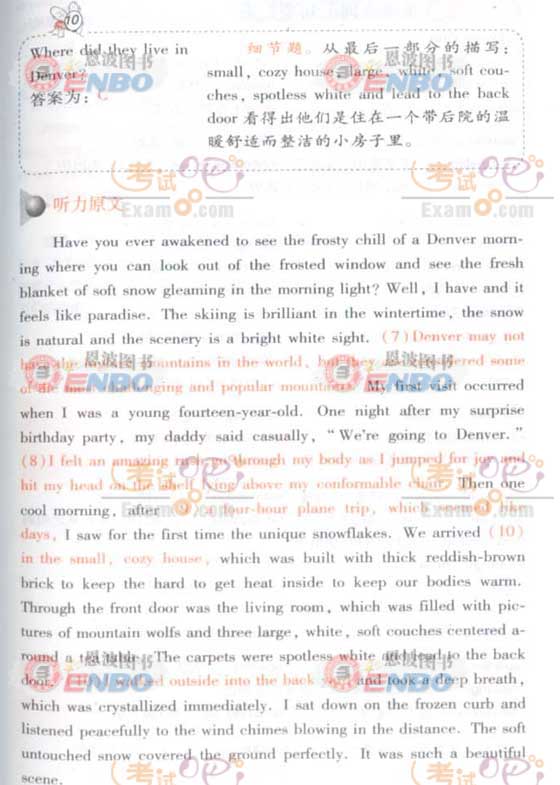 10
Where did they live in
Denver?
答案为：C
细节题。从最后一部分的描写：
small, cozy house, large, white, soft cou-
ches, spotless white and lead to the back
door 看得出他们是住在一个带后院的温
暖舒适而整洁的小房子里。
听力原文
Have you ever awakened to see the frosty chill of a Denver morn-
ing where you can look out of the frosted window and see the fresh
blanket of soft snow gleaming in the morning light? Well, I have and it
feels like paradise. The skiing is brilliant in the wintertime, the snow
is natural and the scenery is a bright white sight. (7) Denver may not
mountains in the world, some
and popular mountains. My first visit occurred
when I was a young fourteen-year-old. One night after my surprise
birthday party, my daddy said casually, "We're going to Denver."
(8) I felt an amazing through my body as I jumped for joy and
hit my head on the shelf above my conformable chair. Then one
cool morning, after a four-hour plane trip, which seemed like
days, I saw for the first time the unique snowflakes. We arrived (10)
in the small, cozy house, which was built with thick reddish-brown
brick to keep the hard to get heat inside to keep our bodies warm.
Through the front door was the living room, which was filled with pic-
tures of mountain wolfs and three large, white, soft couches centered a-
round a The carpets were spotless white and lead to the back
door. I walked outside into the back and took a deep breath,
which was crystallized immediately. I sat down on the frozen curb and
listened peacefully to the wind chimes blowing in the distance. The soft
untouched snow covered the ground perfectly. It was such a beautiful
scene.
恩波图书
ENBO
恩波图书
ENBO
考试
Exam8.com
考试
Exam8.com
恩波图书
ENBO
恩波图书
ENBO
考试
Exam8.com
考试
Exam8.com
恩波图书
ENBO
恩波图书
ENBO
考试
考试